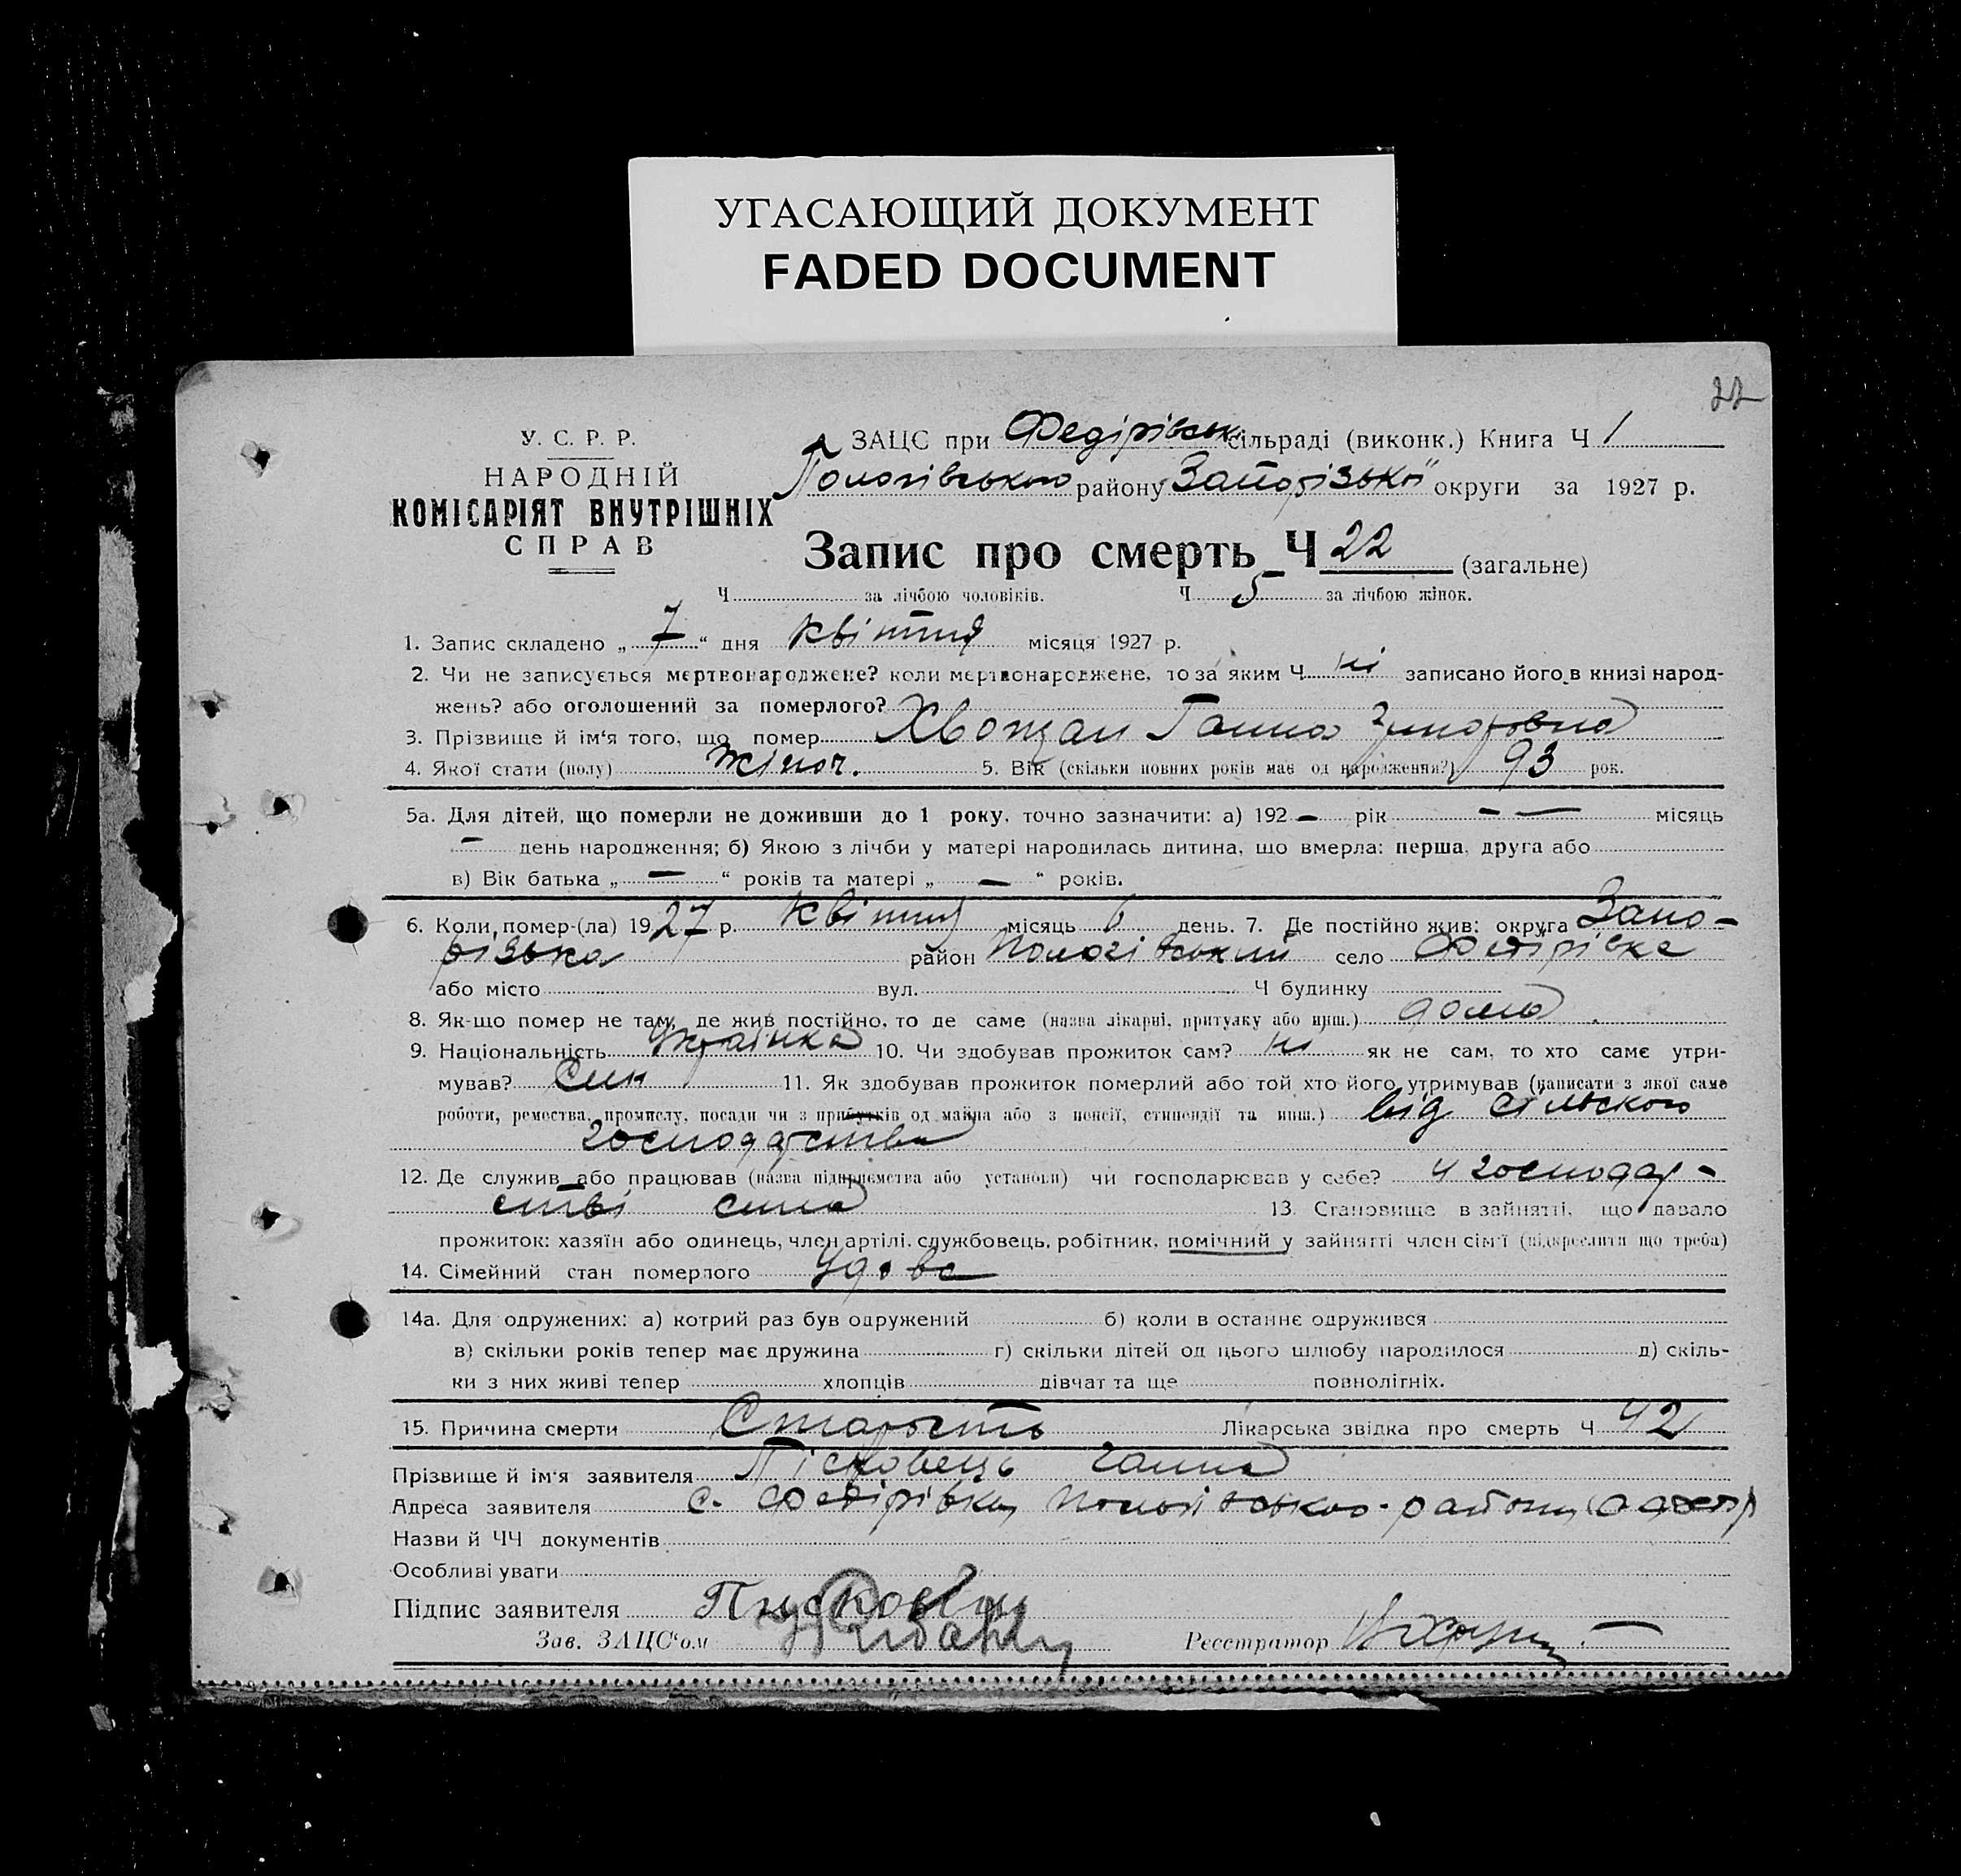 УГАСАЮЩИЙ ДОКУМЕНТ
FADED DOCUMENT
22
У. С. Р. Р.
НАРОДНІЙ
КОМІСАРІЯТ ВНУТРІШНІХ
СПРАВ
ЗАЦС при Федірівськ. сільраді (виконк.) Книга Ч 1
Пологівського району Запорізької округи за 1927 р.
Запис про смерть Ч 22 (загальне)
Ч за лічбою чоловіків. Ч 5 за лічбою жінок.
1. Запис складено „ 7 “ дня квітня місяця 1927 р.
2. Чи не записується мертвонароджене? коли мертвонароджене, то за яким Ч ні записано його в книзі народ-
жень? або оголошений за померлого?
3. Прізвище й ім‘я того, що помер Хвощан Ганна
4. Якої стати (полу) жіноч. 5. Вік (скільки повних років має од народження?) 93 рок.
5а. Для дітей, що померли не доживши до 1 року, точно зазначити: а) 192 — рік — — місяць
— день народження; б) Якою з лічби у матері народилась дитина, що вмерла: перша, друга або
в) Вік батька „ — “ років та матері „ — “ років.
6. Коли помер-(ла) 1927 р. квітня місяць 6 день. 7. Де постійно жив: округа Запо-
різька район Пологівський село Федірівка
або місто вул. Ч будинку
8. Як-що помер не там, де жив постійно, то де саме (назва лікарні, притулку або инш.) дома
9. Національність Українка 10. Чи здобував прожиток сам? ні як не сам, то хто саме утри-
мував? Син 11. Як здобував прожиток померлий або той хто його утримував (написати з якої саме
роботи, ремества, промислу, посади чи з прибутків од майна або з пенсії, стипендії та инш.) від сільского
господарства
12. Де служив або працював (назва підприємства або установи) чи господарював у себе? у господар-
стві сина 13. Становище в зайнятті, що давало
прожиток: хазяїн або одинець, член артілі, службовець, робітник, помічний у зайнятті член сім‘ї (підкреслити що треба)
14. Сімейний стан померлого Удова
14а. Для одружених: а) котрий раз був одружений б) коли в останнє одружився
в) скільки років тепер має дружина г) скільки дітей од цього шлюбу народилося д) скіль-
ки з них живі тепер хлопців дівчат та ще повнолітніх.
15. Причина смерти Старость Лікарська звідка про смерть Ч 42
Прізвище й ім‘я заявителя Ганна
Адреса заявителя с. Федірівки Пологівського району
Назви й ЧЧ документів
Особливі уваги
Підпис заявителя
Зав. ЗАЦС‘ом Реєстратор